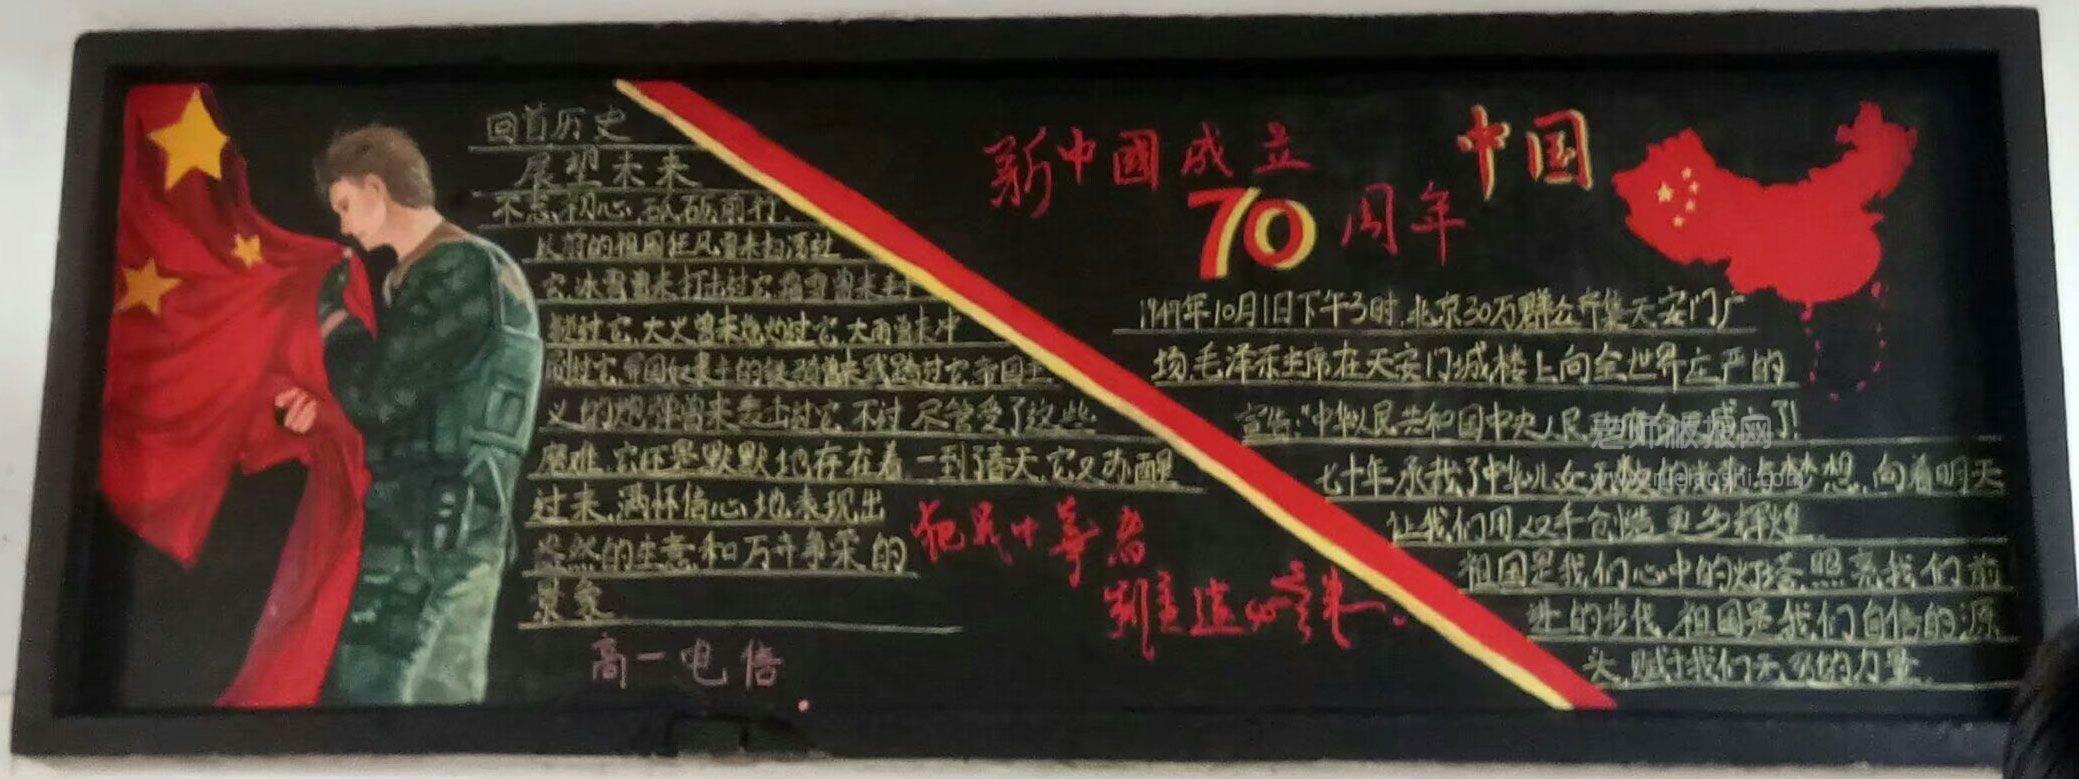 回首历史
展望未来
不忘初心,砥砺前行.
从前的祖国狂风曾来扫荡过
它,冰雪曾来打击过它,霜雪曾来封
锁过它,大火曾来焚灼过它,大雨曾来冲
刷过它,帝国奴隶主的铁蹄曾来践踏过它,帝国主
义的炮弹曾来轰击过它,不过,尽管受了这些
磨难,它还是默默地存在着.一到了春天,它又苏醒
过来,满怀信心地表现出
盎然的生意和万卉争荣的
景象
高一电信
犯我中华者
虽远必诛.
新中國成立
70周年
中国
1949年10月1日下午3时,北京30万群众齐集天安门广
场,毛泽东主席在天安门城楼上向全世界庄严的
宣告:"中华人民共和国中央人民成立了!
七十年承载了中华儿女无数的梦想,向着明天
让我们用双手创造更多辉煌.
祖国是我们心中的灯塔,照亮我们前
进的步伐,祖国是我们自信的源
头,赋予我们无穷的力量.
老师板报网